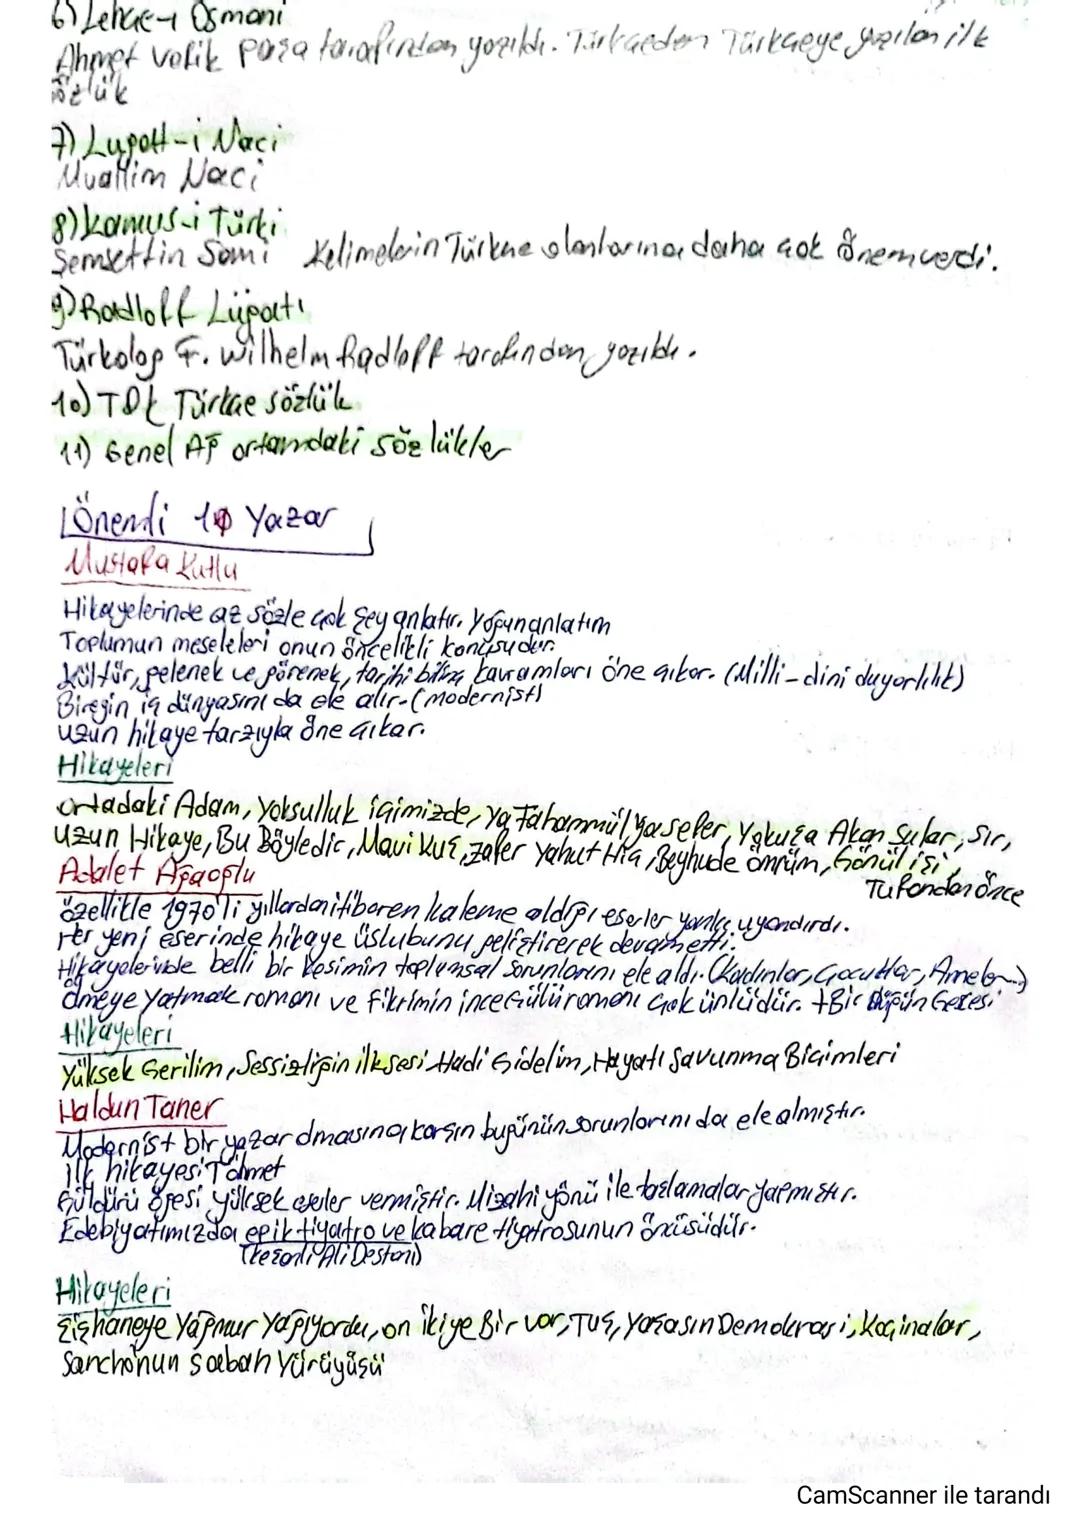 6) Lehçe-i Osmani
Ahmet Vefik Paşa tarafından yazıldı. Türkçeden Türkçeye yazılan ilk
sözlük
7) Lugatt-i Naci
Muallim Naci
8) Kamus-i Türki
Şemsettin Sami Kelimelerin Türkçe olanlarına daha çok önem verdi.
9) Radloff Lügatı
Türkolog F. Wilhelm Radloff tarafından yazıldı.
10) TDK Türkçe sözlük
11) Genel Ağ ortamdaki sözlükler
Önemli 10 Yazar
Mustafa Kutlu
Hikayelerinde az sözle çok şey anlatır. Yoğun anlatım
Toplumun meseleleri onun öncelikli konusudur.
Kültür, gelenek ve görenek, tarihi bilinç kavramları öne çıkar. (Milli-dini duyarlılık)
Bireyin iç dünyasını da ele alır. (modernist)
Uzun hikaye tarzıyla öne çıkar.
Hikayeleri
Ortadaki Adam, Yoksulluk içimizde, Ya Tahammül Ya sefer, Yokuşa Akan Sular, Sır,
Uzun Hikaye, Bu Böyledir, Mavi Kuş, Zafer Yahut Hiç, Beyhude Ömrüm, Gönül işi,
Tufandan önce
Adalet Ağaoğlu
özellikle 1970'li yıllardan itibaren kaleme aldığı eserler yankı uyandırdı.
Her yeni eserinde hikaye üslubunu geliştirerek devam etti.
Hikayelerinde belli bir kesimin toplumsal sorunlarını ele aldı. (Kadınlar, Çocuklar, Amele...)
Ölmeye Yatmak romanı ve Fikrimin ince Gülü romanı çok ünlüdür. +Bir Düğün Gecesi
Hikayeleri
Yüksek Gerilim, Sessizliğin ilk sesi, Hadi Gidelim, Hayatı Savunma Biçimleri
Haldun Taner
Modernist bir yazar olmasına karşın bugünün sorunlarını da ele almıştır.
İlk hikayesi Töhmet
Güldürü öğesi yüksek eserler vermiştir. Mizahi yönü ile taşlamalar yapmıştır.
Edebiyatımızda epik tiyatro ve kabare tiyatrosunun öncüsüdür.
(Keşanlı Ali Destanı)
Hikayeleri
Şişhaneye Yağmur Yağıyordu, on ikiye Bir var, Tuş, Yaşasın Demokrasi, Koçinalar,
Sancho'nun Sabah Yürüyüşü
CamScanner ile tarandı